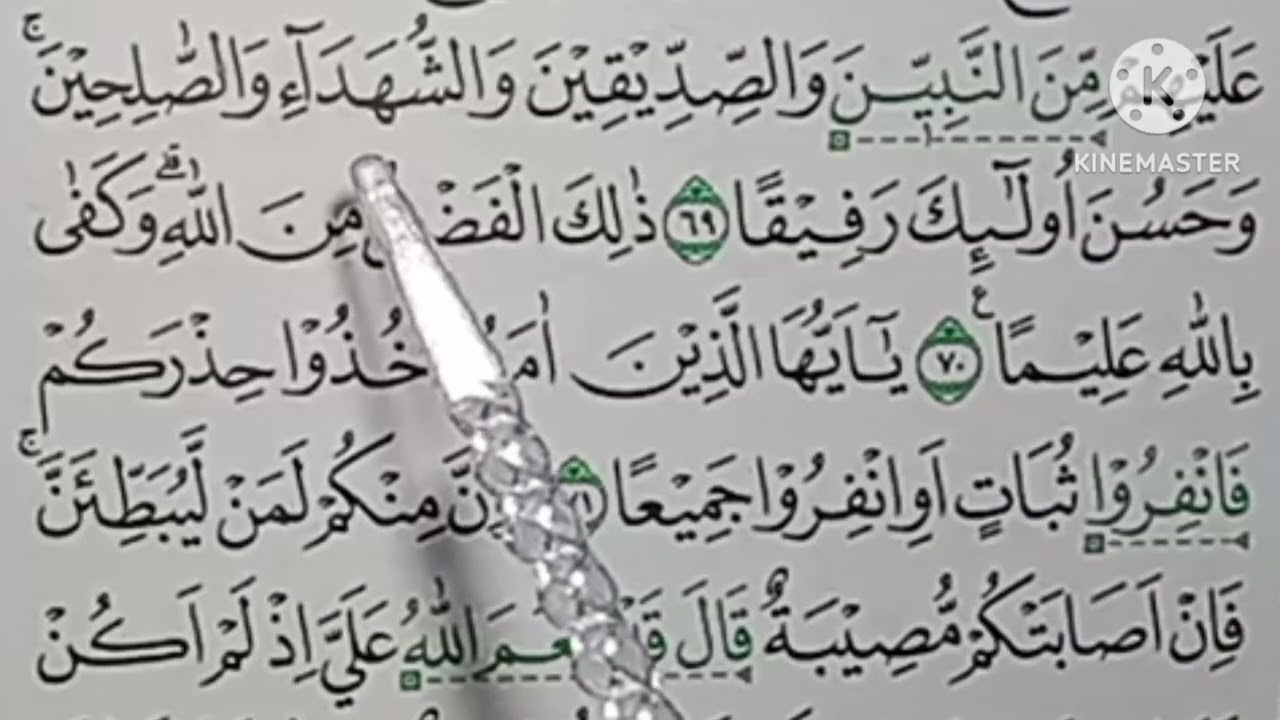 عَلَيْهِمْ مِّنَ النَّبِيّٖنَ وَالصِّدِّيْقِيْنَ وَالشُّهَدَاۤءِ وَالصّٰلِحِيْنَ ۚ
KINEMASTER
وَحَسُنَ اُولٰۤىِٕكَ رَفِيْقًا ٦٩ ذٰلِكَ الْفَضْلُ مِنَ اللّٰهِ ۗ وَكَفٰى
بِاللّٰهِ عَلِيْمًا ࣖ ٧٠ يٰٓاَيُّهَا الَّذِيْنَ اٰمَنُوْا خُذُوْا حِذْرَكُمْ
فَانْفِرُوْا ثُبَاتٍ اَوِ انْفِرُوْا جَمِيْعًا ٧١ وَاِنَّ مِنْكُمْ لَمَنْ لَّيُبَطِّئَنَّ ۚ
فَاِنْ اَصَابَتْكُمْ مُّصِيْبَةٌ قَالَ قَدْ اَنْعَمَ اللّٰهُ عَلَيَّ اِذْ لَمْ اَكُنْ